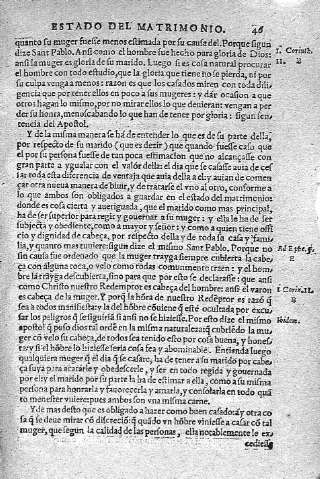 ESTADO DEL MATRIMONIO. 46
quanto su muger fuesse menos estimada por su causa del. Porque segun
dize Sant Pablo. Ansi como el hombre fue hecho para gloria de Dios:
ansi la muger es gloria de su marido. Luego si es cosa natural procurar
1. Corinth. 11.
el hombre con todo estudio, que la gloria que tiene no se pierda, ni por
su culpa venga a menos: razon es que los casados miren con toda dili
gencia que por tener ellos en poco a sus mugeres: y dar ocasion a que
otros hagan lo mismo, por no mirar ellos lo que deuieran: vengan a per
der su honra, menoscabando lo que han de tener por gloria: segun sen-
tencia del Apostol.
Y de la misma manera se ha de entender lo que es de su parte della,
por respecto de su marido (que es dezir) que quando fuesse caso que
el por su persona fuesse de tan poca estimacion que no alcançasse con
gran parte a ygualar con el valor della: el dia que se casasse auia de ces
sar toda esta diferencia de ventaja que auia della a el: y auian de comen
çar otra nueua manera de biuir, y de tratarse el vno al otro, conforme a
lo que ambos son obligados a guardar en el estado del matrimonio:
donde es cosa cierta y aueriguada, que el marido como mas principal,
ha de ser superior para regir y gouernar a su muger: y ella le ha de ser
subjecta y obediente, como a mayor y señor: y como a quien tiene offi
cio y dignidad de cabeça, por respecto della y de toda su casa y fami-
lia, y quanto mas tuuiere: segun dize el mismo Sant Pablo. Porque no
Ad Ephe. 5.
sin causa fue ordenado que la muger trayga siempre cubierta la cabe-
ça con alguna toca, o velo como todas comunmente traen: y el hom-
bre la trayga descubierta, sino para que por esto se declarasse: que ansi
como Christo nuestro Redemptor es cabeça del hombre: ansi el varon
1. Corin. 11.
es cabeça de la muger. Y porq̃ la hõra de nuestro Redẽptor es razõ q̃
sea a todos manifiesta:
Ibidem.
apostol q̃ puso dios tal ordẽ en la misma naturaleza: q̃ cubriẽdo la mu-
ger cõ velo su cabeça, de todos sea tenido esto por cosa buena, y hones-
ta: y si el hõbre lo hiziesse seria cosa fea y abominable. Entienda luego
qualquiera muger q̃ el dia q̃ se casare, ha de tener a su marido por cabe-
ça suya para acatarle y obedescerle, y ser en todo regida y gouernada
por el: y el marido por su parte la ha de estimar a ella, como a su misma
persona para honrarla y fauorecerla y amarla, y consolarla en todo quã
to menester vuiere: pues ambos son vna misma carne.
Y de mas desto que es obligado a hazer como buen casado: ay otra co
sa q̃ se deue mirar cõ discreciõ: q̃ quãdo vn hõbre viniesse a casar cõ tal
muger, que segun la calidad de las personas, ella notablemente le ex-
cediesse